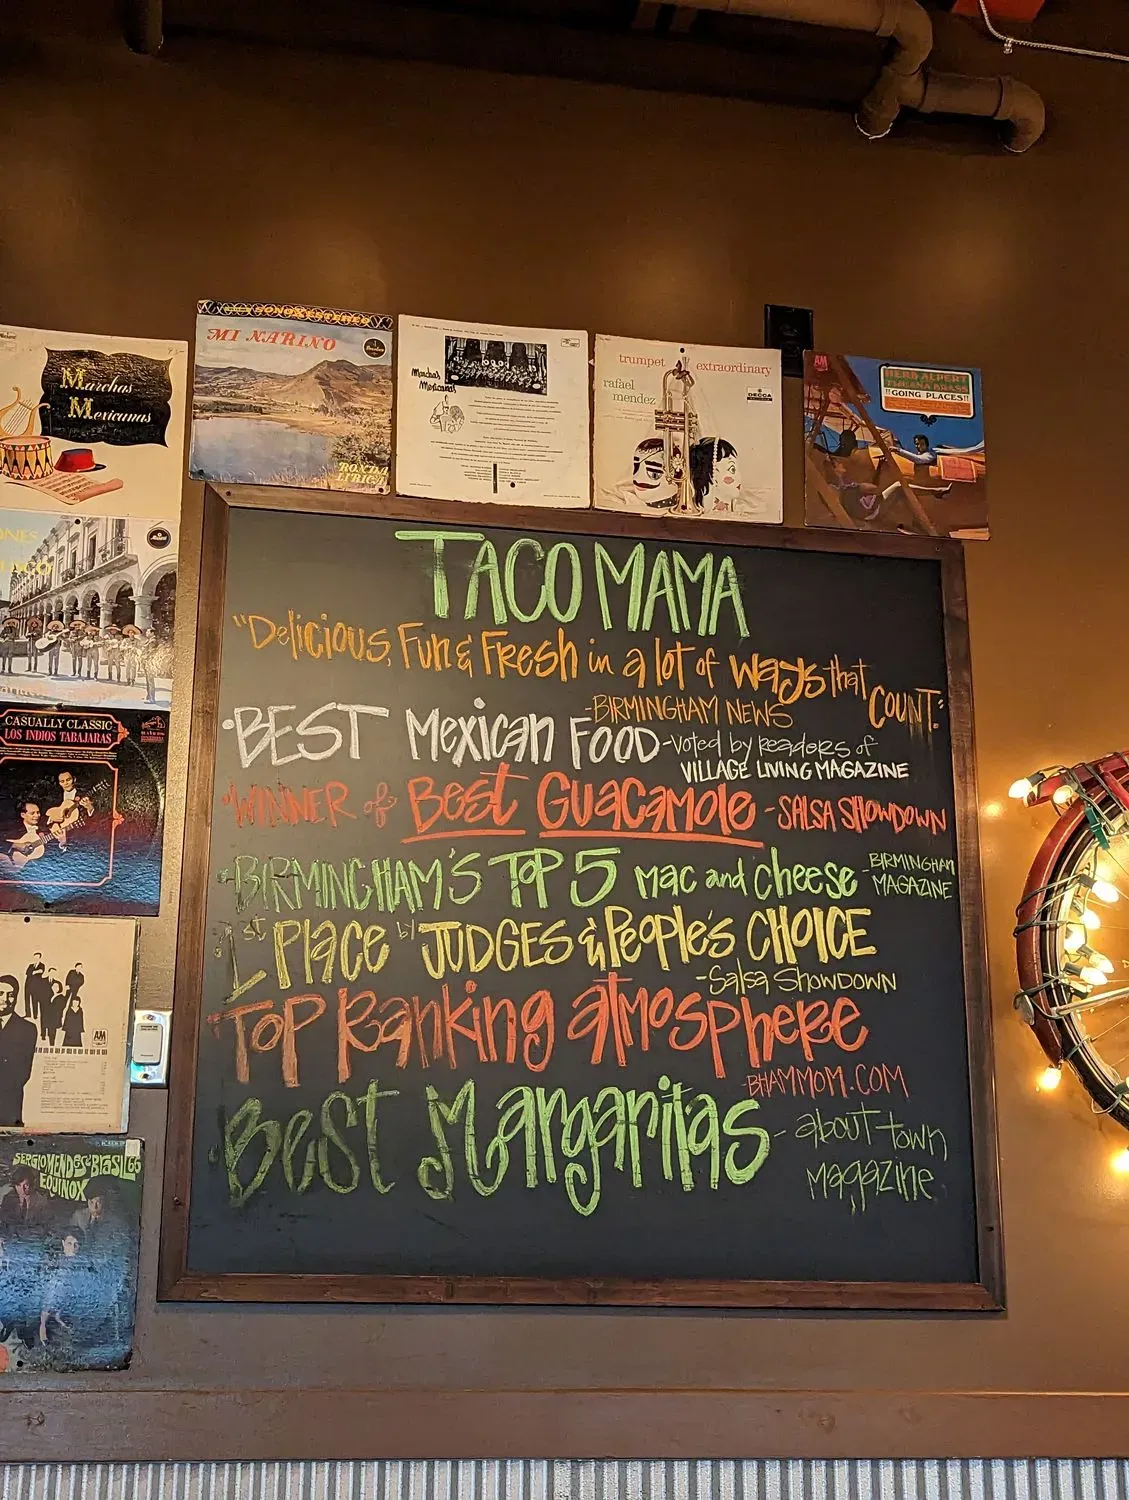 Marchas
Mexicanas
SONOXESTEREO
MI NARINO
RONDA
LIRICA
Marchas
Mexicanas
trumpet extraordinary
rafael
mendez
DECCA
A&M
HERB ALPERT
TIJUANA BRASS
!!GOING PLACES!!
CASUALLY CLASSIC
LOS INDIOS TABAJARAS
A&M
SERGIO MENDES & BRASIL 66
EQUINOX
TACO MAMA
"Delicious, Fun & Fresh in a lot of ways that COUNT."
-BIRMINGHAM NEWS
•BEST Mexican FOOD -voted by readers of
VILLAGE LIVING MAGAZINE
•WINNER of Best Guacamole -SALSA SHOWDOWN
•BIRMINGHAM'S TOP 5 mac and cheese -BIRMINGHAM
MAGAZINE
1st Place by JUDGES & People's CHOICE
-Salsa Showdown
•Top Ranking atmosphere
-BHAMMOM.COM
•Best Margaritas -about town
magazine